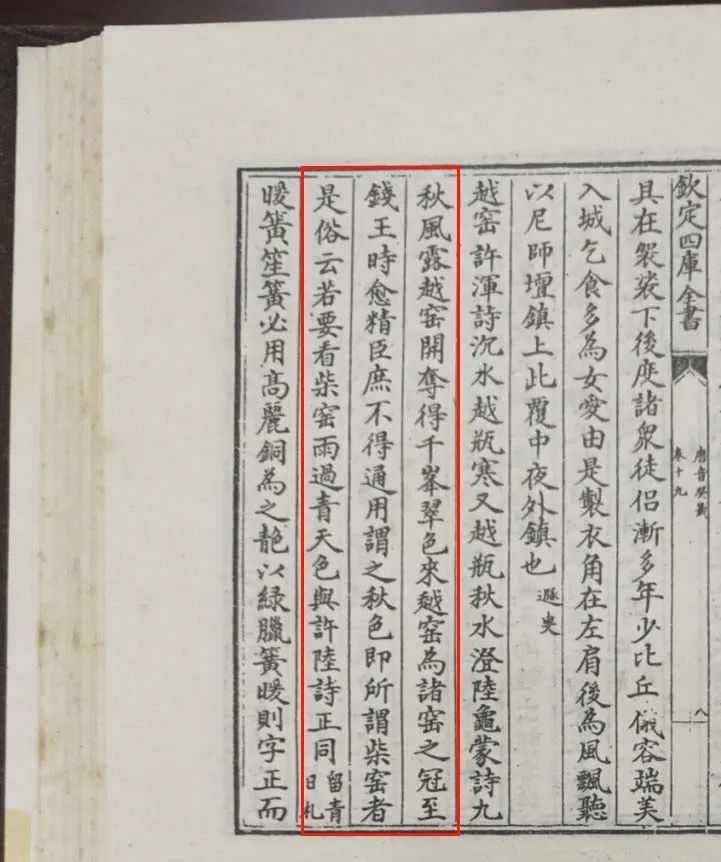 欽定四庫全書
唐音癸籤
卷十九
八
具在袈裟下後度諸衆徒侶漸多年少比丘儀容端美
入城乞食多為女愛由是製衣角在左肩後為風飄聽
以尼師壇鎮上此覆中夜外鎮也
越窑許渾詩沉水越瓶寒又越瓶秋水澄陸龜蒙詩九
秋風露越窑開奪得千峯翠色來越窑為諸窑之冠至
錢王時愈精臣庶不得通用謂之秋色即所謂柴窑者
是俗云若要看柴窑雨過青天色與許陸詩正同留青日札
暖簧笙簧必用髙麗銅為之靘以緑臘簧暖則字正而